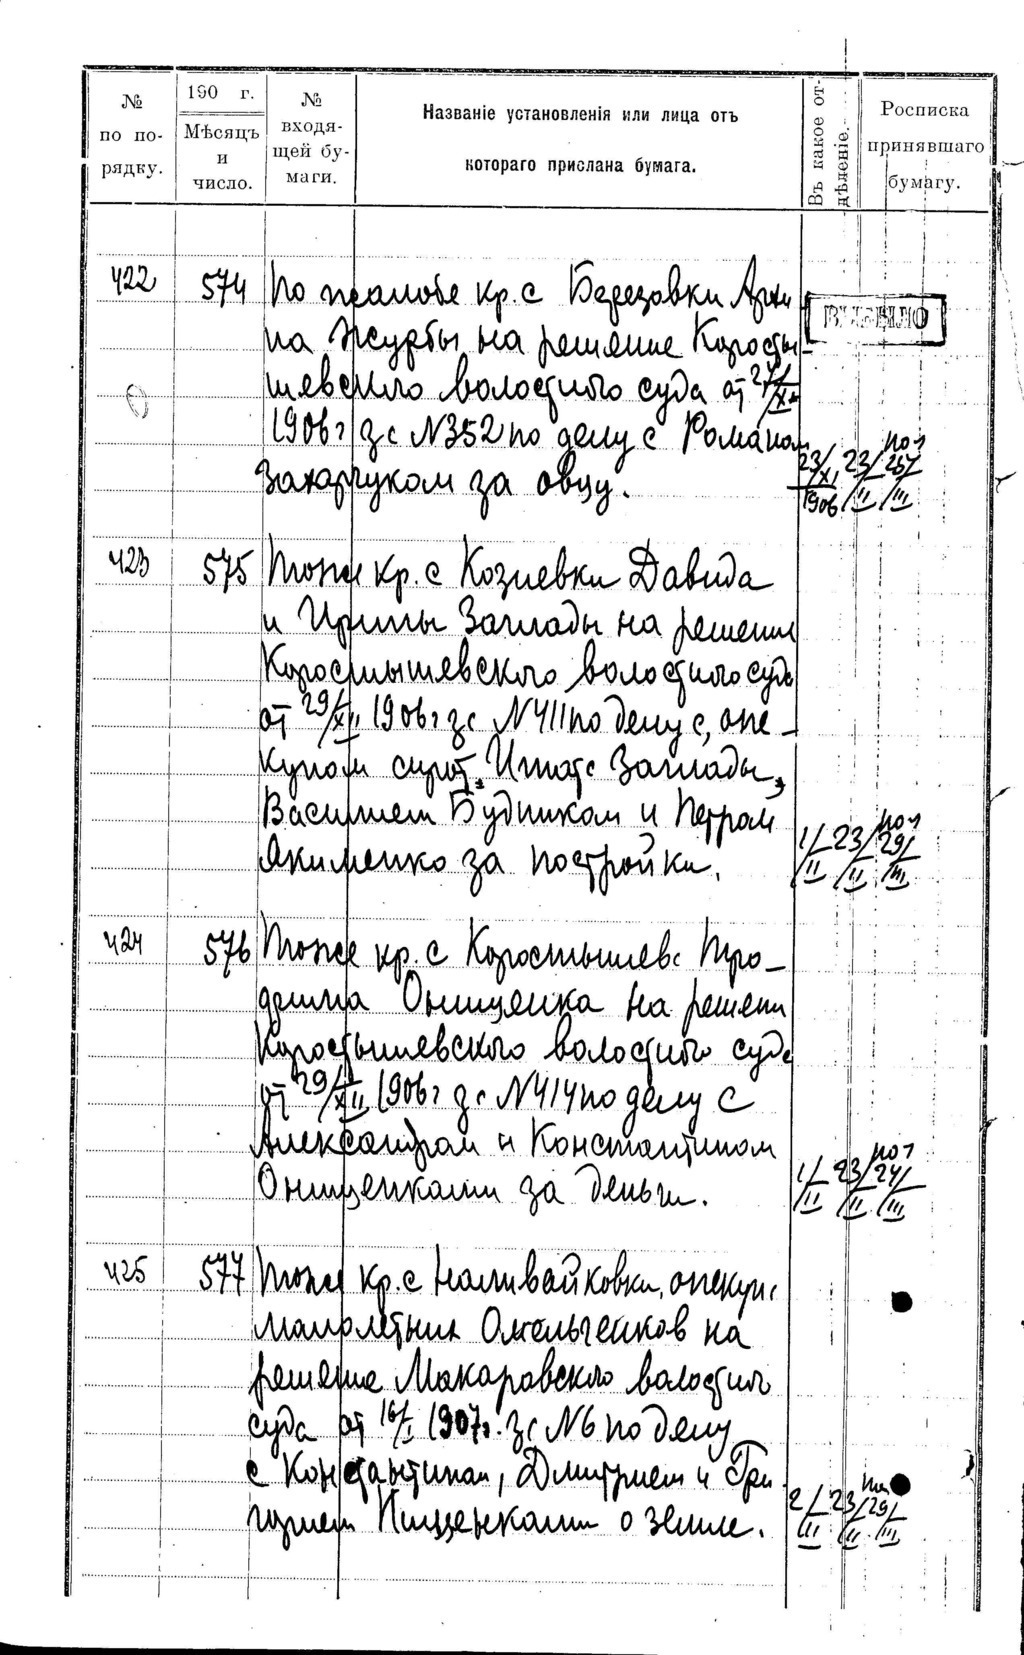 №
по по-
рядку.
190 г.
Мѣсяцъ
и
число.
№
входя-
щей бу-
маги.
Названіе установленія или лица отъ
котораго прислана бумага.
Въ какое от-
дѣленіе.
Росписка
принявшаго
бумагу.
422 574 По жалобе кр. с Березовки Архи
па Жсурбы на решение Коросты-
шевского волостного суда от 27/XI
1906 г за №352 по делу с Романом
Захарчуком за овцу.
23/XI 1906 23/II пол 25/III
423 575 Тоже кр. с Козиевки Давида
и Ирины Заглады на решение
Коростышевского волостного суда
от 29/XII 1906 г за №411 по делу с опе-
куном сирот Игнат Заглады,
Василием Будником и Петром
Якименко за постройки.
1/II 23/II пол 29/III
424 576 Тоже кр. с Коростышева Тро-
Онищенка на решени
Коростышевского волостного суда
от 29/XII 1906 г за №414 по делу с
Александром и Константином
Онищенками за деньги.
1/II 23/II пол 24/III
425 577 Тоже кр. с Наливайковки, опекун
малолетних Омельченков на
решение Макаровского волостного
суда от 16/I 1907 г. за №6 по делу
с Константином, Дмитрием и Гри
горием Нищенками о земле.
2/II 23/II 29/III